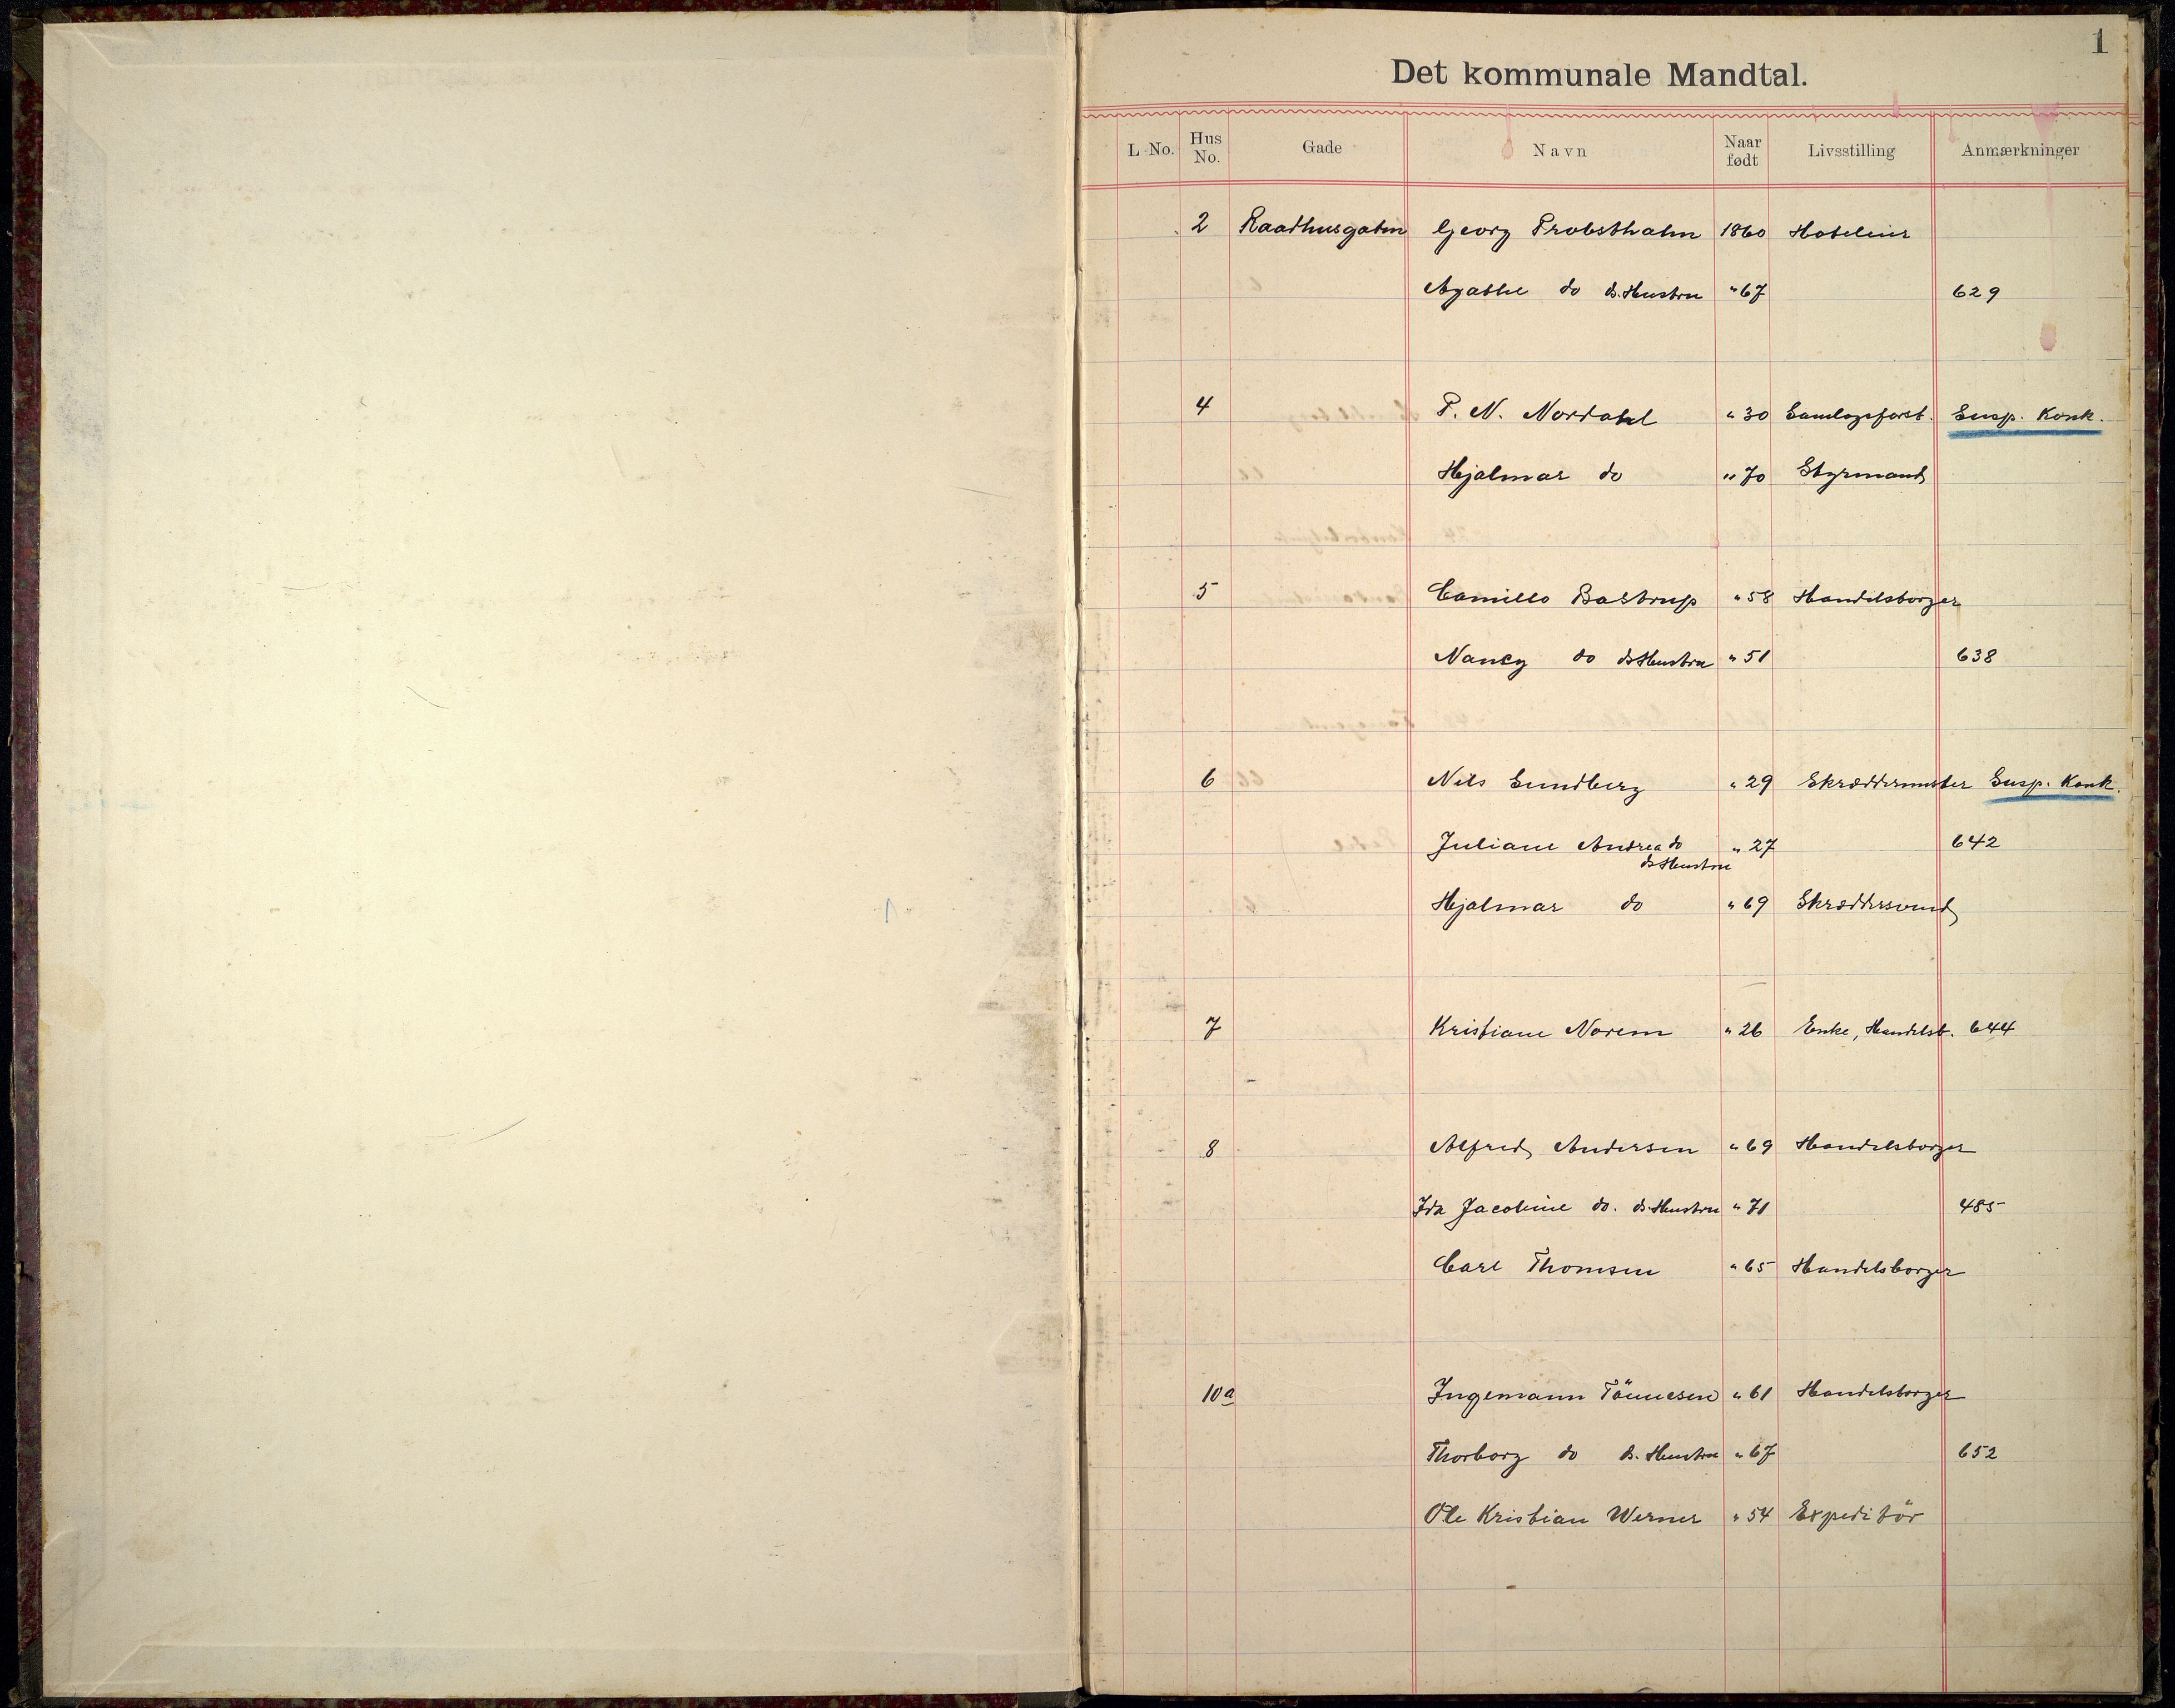 1
Det kommunale Mandtal.
L. No. Hus No. Gade Navn Naar født Livsstilling Anmærkninger
2 Raadhusgaten Georg Probsthahn 1860 Hoteleier
Agathe do ds. Hustru " 67 629
4 P. N. Nordahl " 30 Samlagsforst. Susp. Konk.
Hjalmar do " 70 Styrmand
5 Camillo Bastrup " 58 Handelsborger
Nancy do ds Hustru " 51 638
6 Nils Lundberg " 29 Skræddermester Susp. Konk.
Juliane Andrea do " 27 642
ds Hustru
Hjalmar do " 69 Skræddersvend
7 Kristiane Norem " 26 Enke, Handelsb. 644
8 Alfred Andersen " 69 Handelsborger
Ida Jacobine do. ds. Hustru " 71 485
Carl Thomsen " 65 Handelsborger
10a Ingemann Tönnesen " 61 Handelsborger
Thorborg do ds. Hustru " 67 652
Ole Kristian Werner " 54 Expeditör